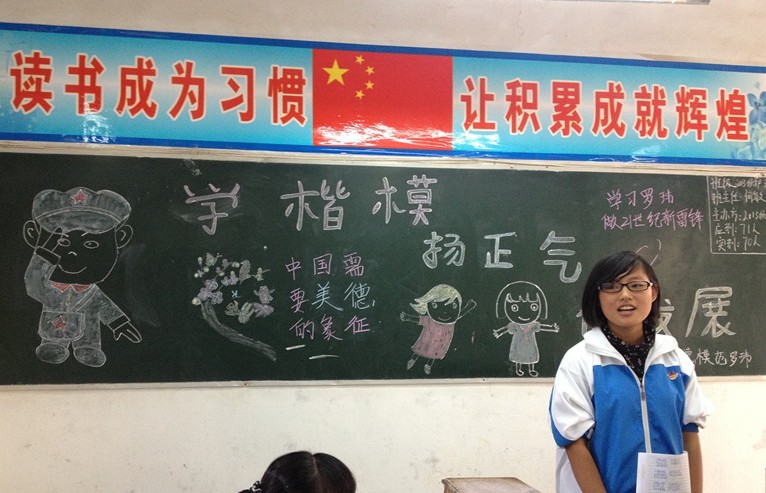 读书成为习惯 让积累成就辉煌
学楷模
扬正气
发展
中国需
要美德
的象征
学习罗玮
做21世纪新雷锋
应到:71人
实到:70人
模范罗玮